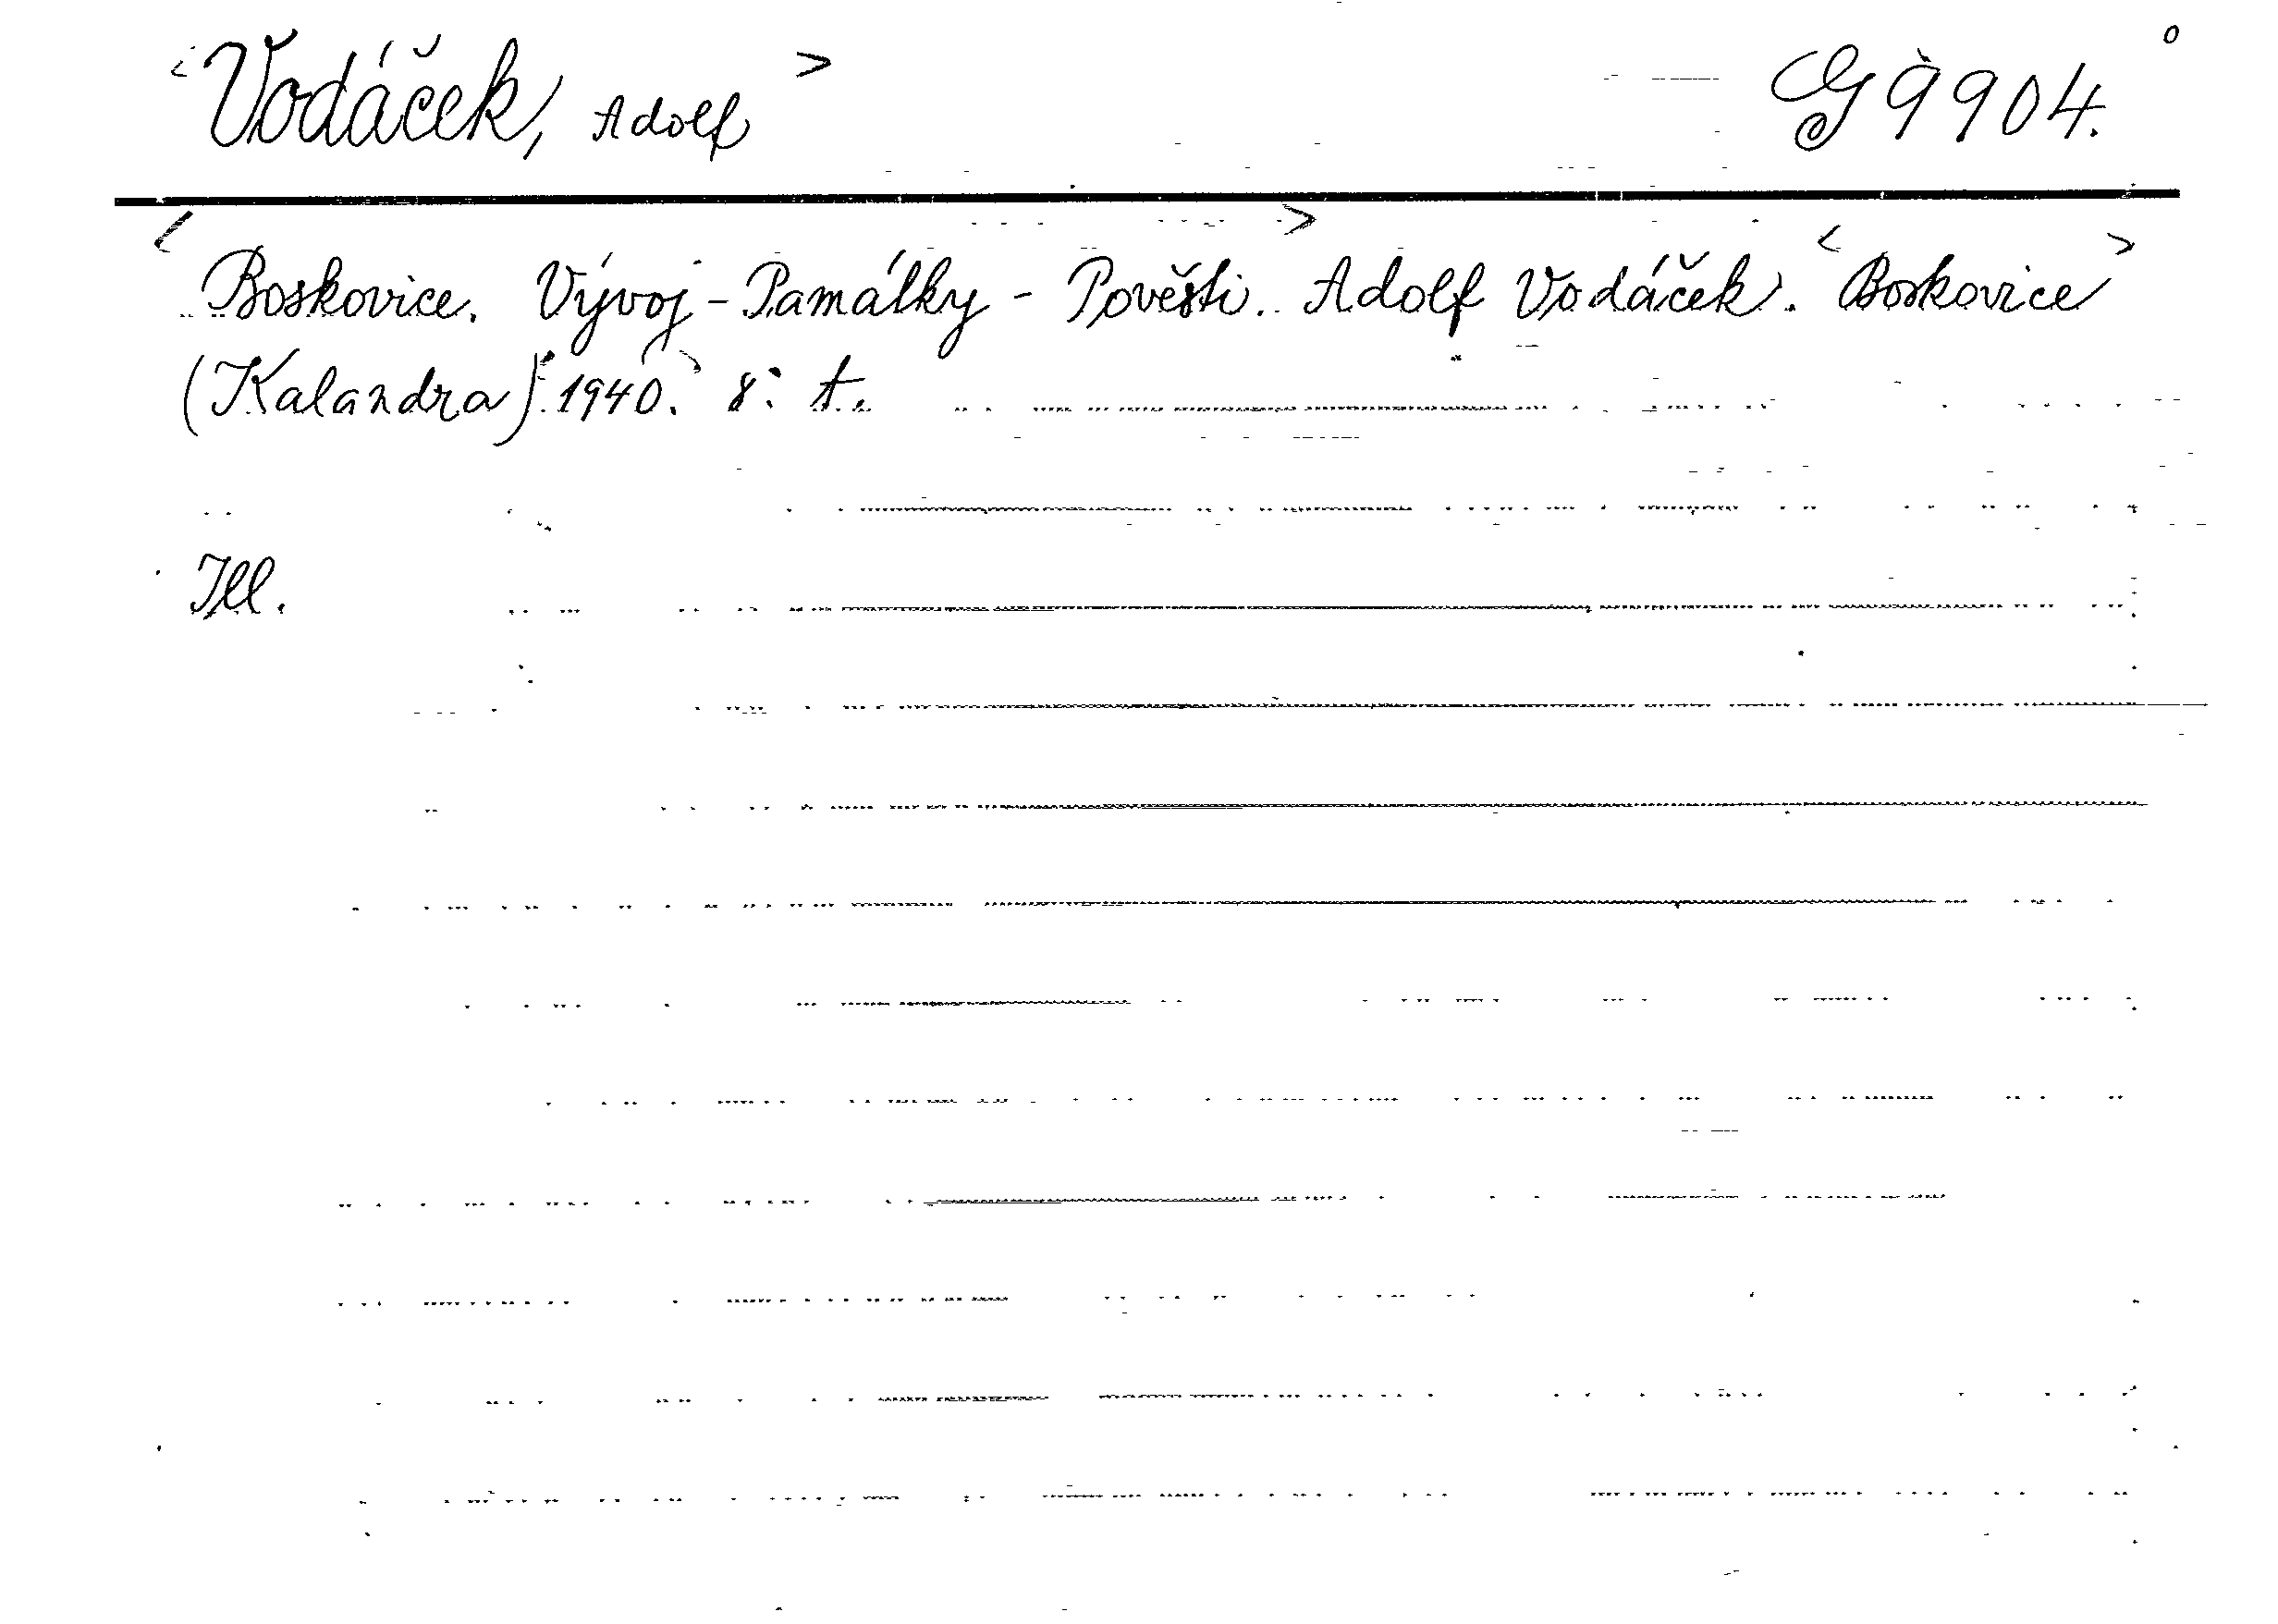 <Vodáček, Adolf> G 9904.
<Boskovice. Vývoj - Památky - Pověsti.> Adolf Vodáček. <Boskovice>
(Kalandra). 1940. 8° t.
Ill.